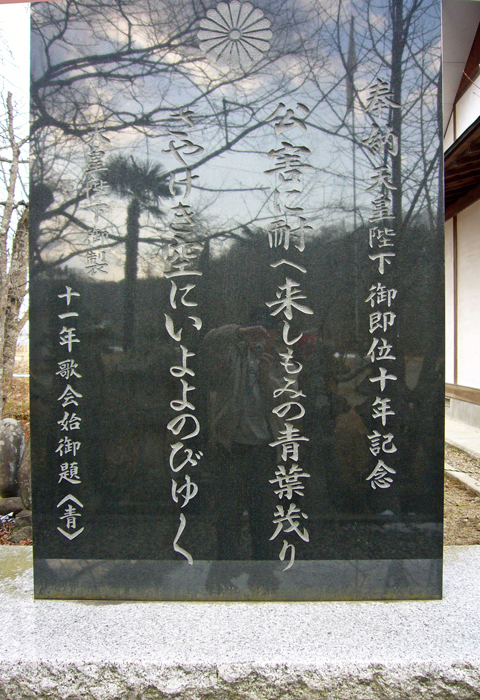 奉納天皇陛下御即位十年記念
公害に耐へ来しもみの青葉茂り
さやけき空にいよよのびゆく
天皇陛下御製
十一年歌会始御題〈青〉